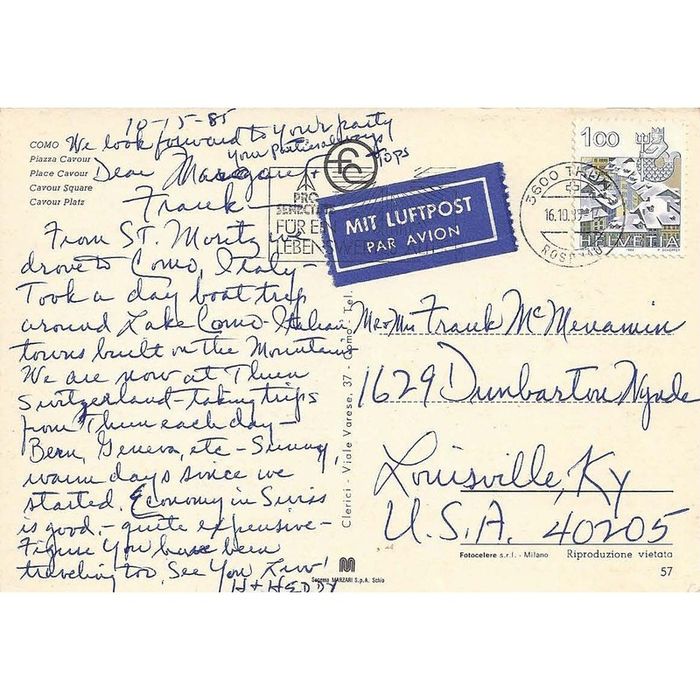 10-15-85
We look forward to your party
your parties always
tops
COMO
Piazza Cavour
Place Cavour
Cavour Square
Cavour Platz
Dear Margaret +
Frank
From ST. Moritz
drove to Como, Italy-
Took a day boat trip
around Lake Como-Italian
towns built on the Mountains
We are now at Thun
Switzerland-taking trips
from Thun each day-
Bern, Geneva, etc-Sunny,
warm days since we
started. Economy in Swiss
is good,- quite expensive-
Figure You have been
traveling too. See You Luv!
H + HEDDY
PRO
SENECTUTE
FÜR EIN
LEBENSWERTES
MIT LUFTPOST
PAR AVION
3600 THUN
16.10.85-17
100
HELVETIA
Clerici - Viale Varese, 37 - Como Tel.
Mr & Mrs Frank McMenamin
1629 Dunbarton Wynde
Louisville, Ky
U.S.A. 40205
Fotocelere s.r.l. - Milano
Riproduzione vietata
M
MARZARI S.p.A. Schio
57